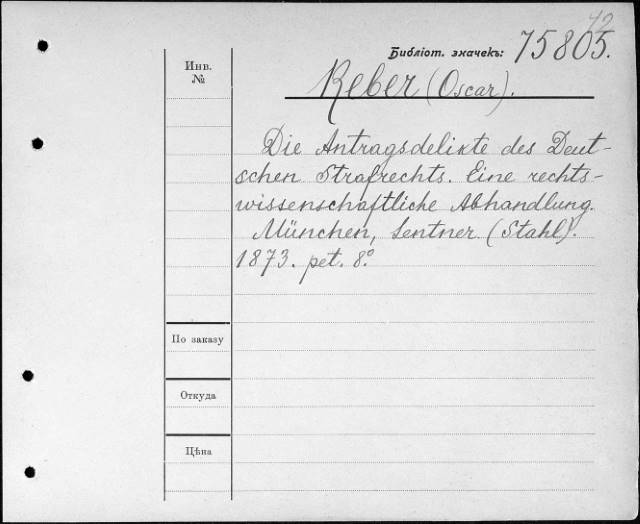 72
Библіот. значекъ: 75805.
Инв.
№
Reber (Oscar).
Die Antragsdelikte des Deut-
schen Strafrechts. Eine rechts-
wissenschaftliche Abhandlung.
München, Lentner (Stahl).
1873. pet. 8º
По заказу
Откуда
Цѣна